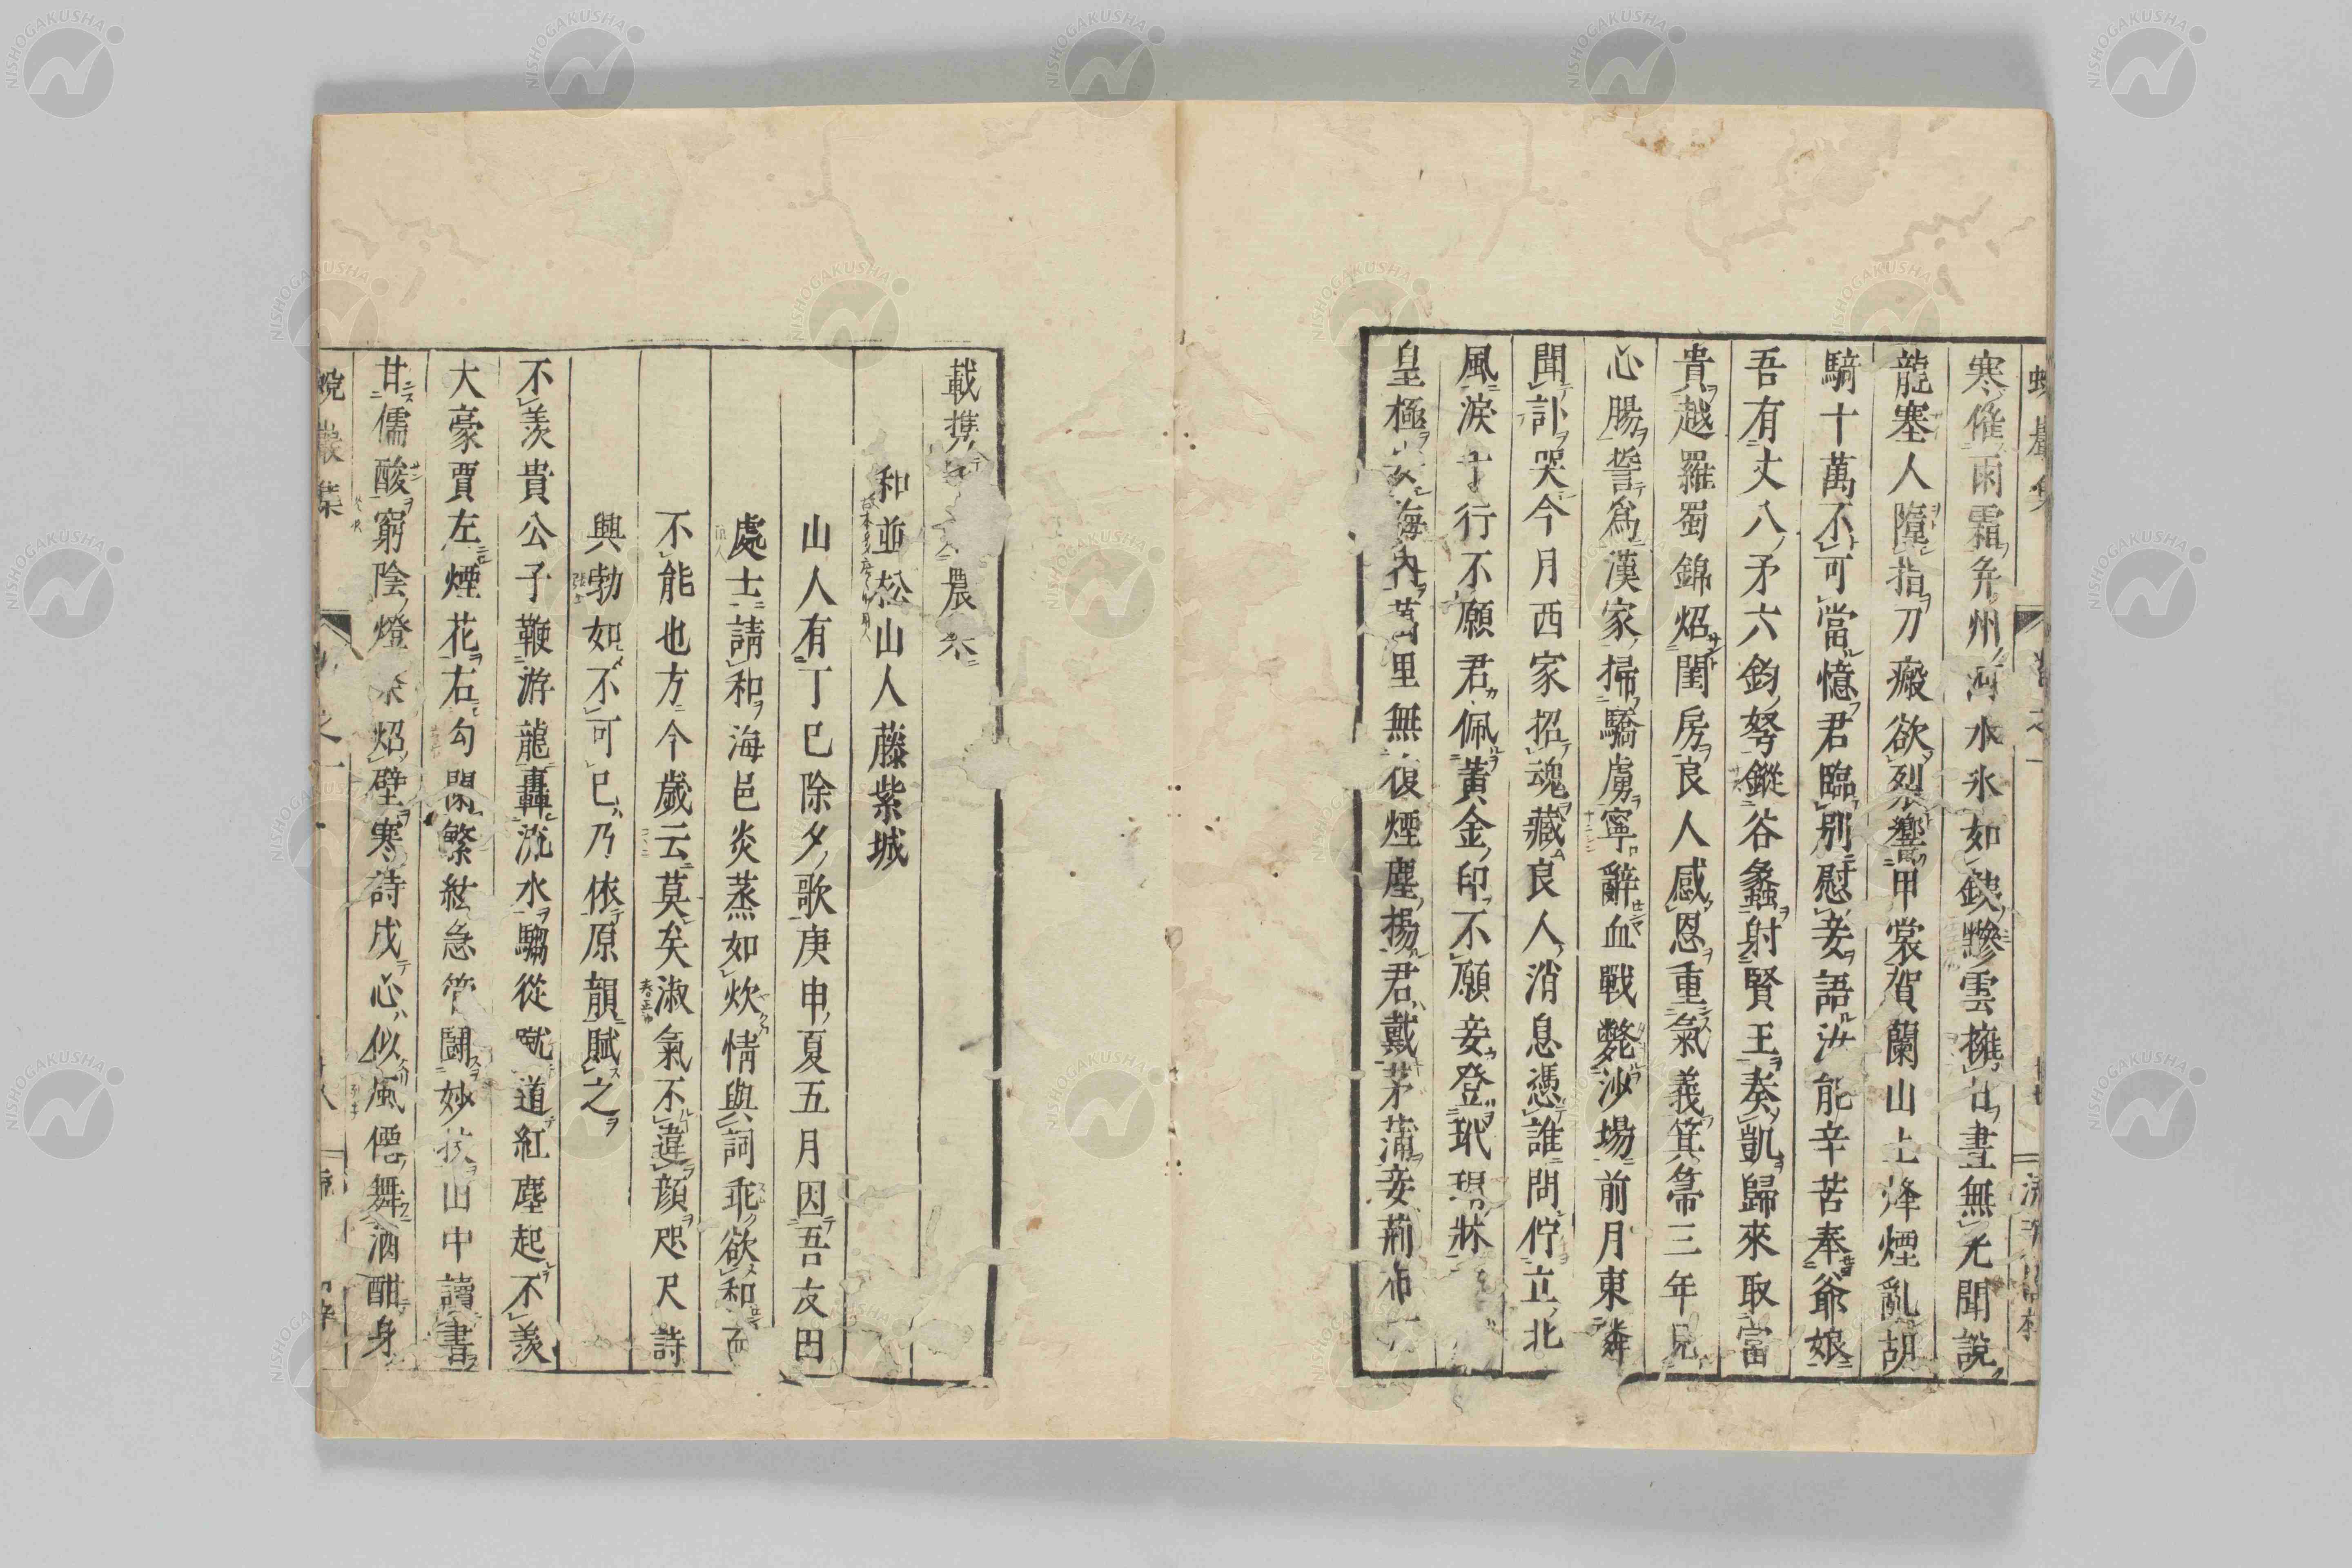 寒催雨霜弁州河水氷如鉄黲雲擁日晝無光聞說
龍塞人隋指刀瘢欲裂響甲裳賀蘭山上烽煙亂胡
騎十萬不可當憶君臨別慰妾語汝能辛苦奉爺娘
吾有丈八矛六鈞弩鏦谷蠡射賢王奏凱歸來取富
貴越羅蜀錦炤閨房良人感恩重氣義箕箒三年見
心腸誓爲漢家掃驕虜寧辭血戰斃沙場前月東鄰
聞訃哭今月西家招魂藏良人消息憑誰問佇立北
風淚千行不願君佩黃金印不願妾登玳瑁牀
皇極安海內萬里無復煙塵揚君戴茅蒲妾荊布
載携農
和並松山人藤紫城
山人有丁巳除夕歌庚申夏五月因吾友田
處士請和海邑炎蒸如炊情與詞乖欲和而
不能也方今歲云莫矣淑氣不違顏咫尺詩
興勃如不可已乃依原韻賦之
不羨貴公子鞭游龍轟流水騶從蹴道紅塵起不羨
大豪賈左煙花右勾闌繁絃急管鬪妙技山中讀書
甘儒酸窮陰燈炤壁寒詩成心似風僊舞酒酣身